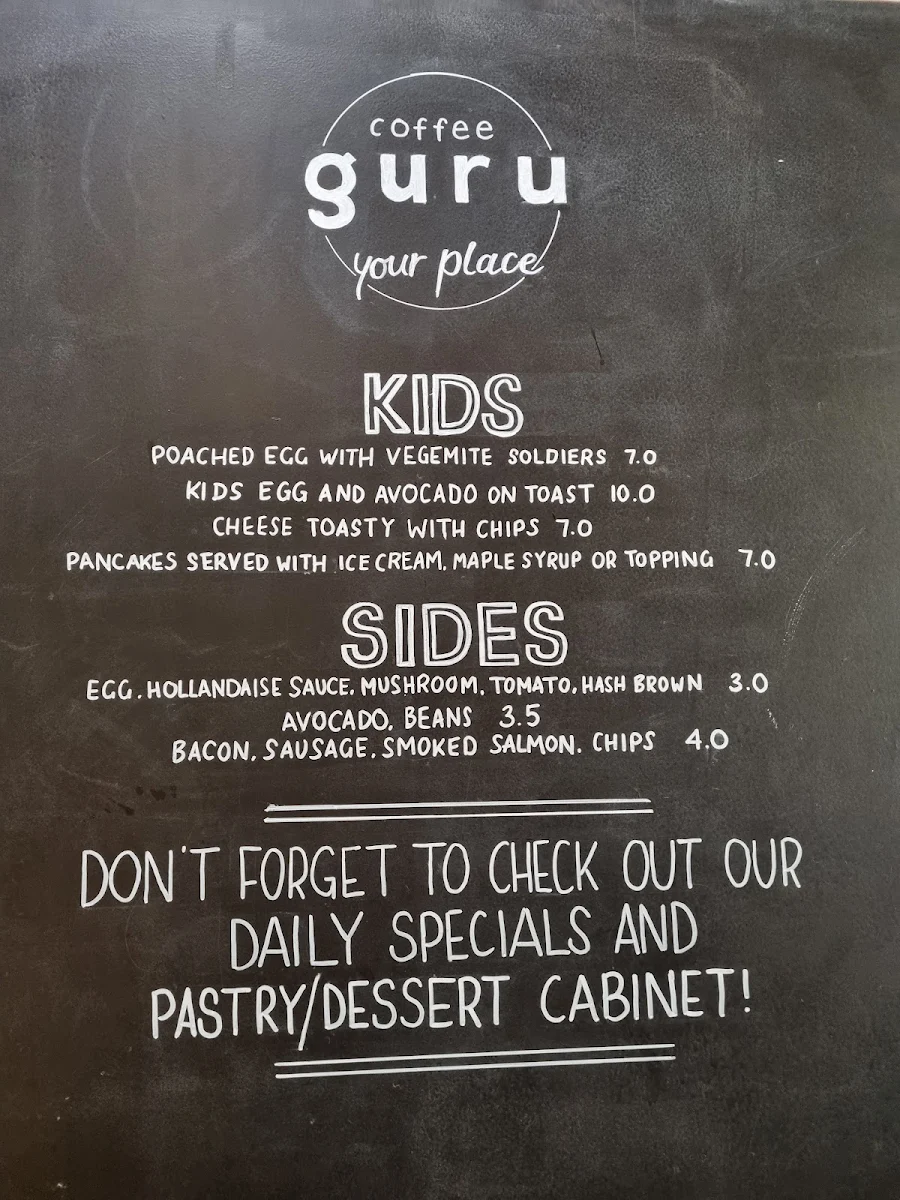 coffee
guru
your place
KIDS
POACHED EGG WITH VEGEMITE SOLDIERS 7.0
KIDS EGG AND AVOCADO ON TOAST 10.0
CHEESE TOASTY WITH CHIPS 7.0
PANCAKES SERVED WITH ICE CREAM, MAPLE SYRUP OR TOPPING 7.0
SIDES
EGG, HOLLANDAISE SAUCE, MUSHROOM, TOMATO, HASH BROWN 3.0
AVOCADO, BEANS 3.5
BACON, SAUSAGE, SMOKED SALMON, CHIPS 4.0
DON'T FORGET TO CHECK OUT OUR
DAILY SPECIALS AND
PASTRY/DESSERT CABINET!